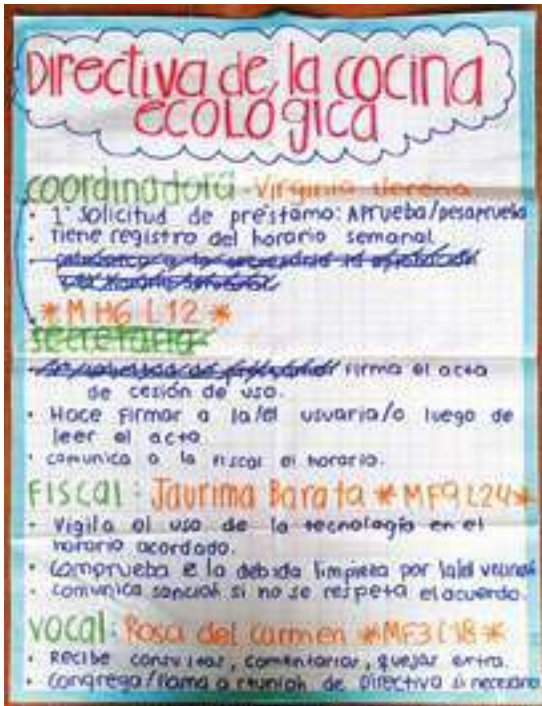 Directiva de la cocina
ecológica
coordinadora - Virginia
• 1° solicitud de préstamo: Aprueba/desaprueba
• Tiene registro del horario semanal
* M H6 L12 *
secretaria
firma el acta
de cesión de uso.
• Hace firmar a la/el usuaria/o luego de
leer el acta
• comunica a la fiscal el horario.
Fiscal: Jaurima Barata * MF9 L24 *
• Vigila el uso de la tecnología en el
horario acordado.
• Comprueba la debida limpieza por la/el
• comunica sanción si no se respeta el acuerdo.
vocal: Rosa del carmen * MF3 L18 *
• Recibe consultas, comentarios, quejas extra.
• Congrega/llama a reunión de Directiva si necesario